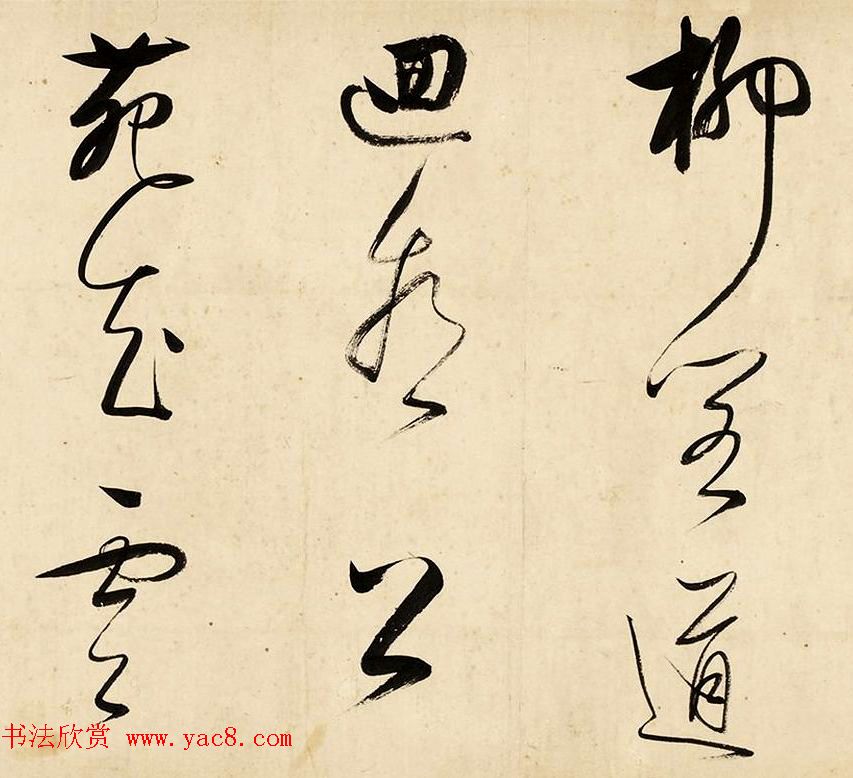 柳閣道
迴看上
苑花雲
书法欣赏 www.yac8.com